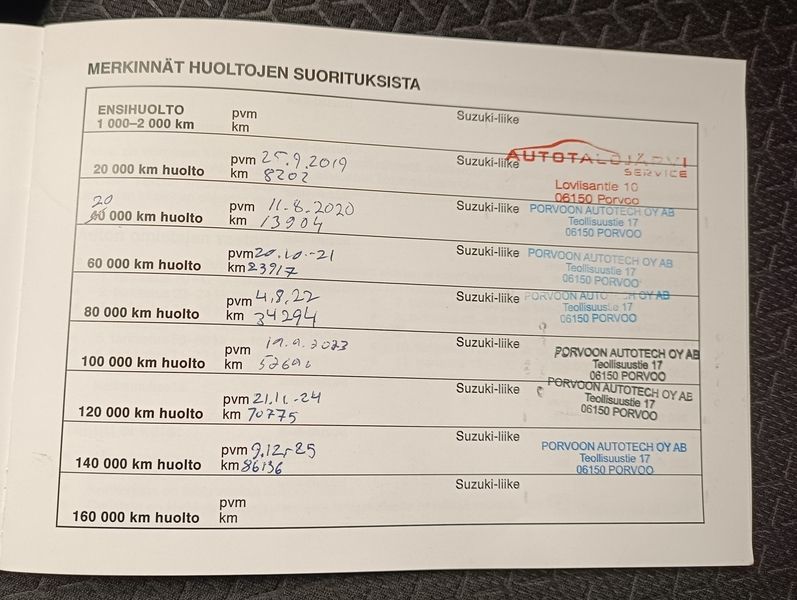 MERKINNÄT HUOLTOJEN SUORITUKSISTA
ENSIHUOLTO
1 000–2 000 km
pvm
km
Suzuki-liike
20 000 km huolto
pvm 25.9.2019
km 8202
Suzuki-liike
AUTOTALOJÄRVI
SERVICE
Loviisantie 10
06150 PORVOO
20
40 000 km huolto
pvm 11.8.2020
km 13904
Suzuki-liike
PORVOON AUTOTECH OY AB
Teollisuustie 17
06150 PORVOO
60 000 km huolto
pvm 20.10.-21
km 23917
Suzuki-liike
PORVOON AUTOTECH OY AB
Teollisuustie 17
06150 PORVOO
80 000 km huolto
pvm 4.8.22
km 34294
Suzuki-liike
PORVOON AUTOTECH OY AB
Teollisuustie 17
06150 PORVOO
100 000 km huolto
pvm 19.9.2023
km
Suzuki-liike
PORVOON AUTOTECH OY AB
Teollisuustie 17
06150 PORVOO
120 000 km huolto
pvm 21.11.-24
km 70775
Suzuki-liike
PORVOON AUTOTECH OY AB
Teollisuustie 17
06150 PORVOO
140 000 km huolto
pvm 9.12.-25
km 86136
Suzuki-liike
PORVOON AUTOTECH OY AB
Teollisuustie 17
06150 PORVOO
160 000 km huolto
pvm
km
Suzuki-liike